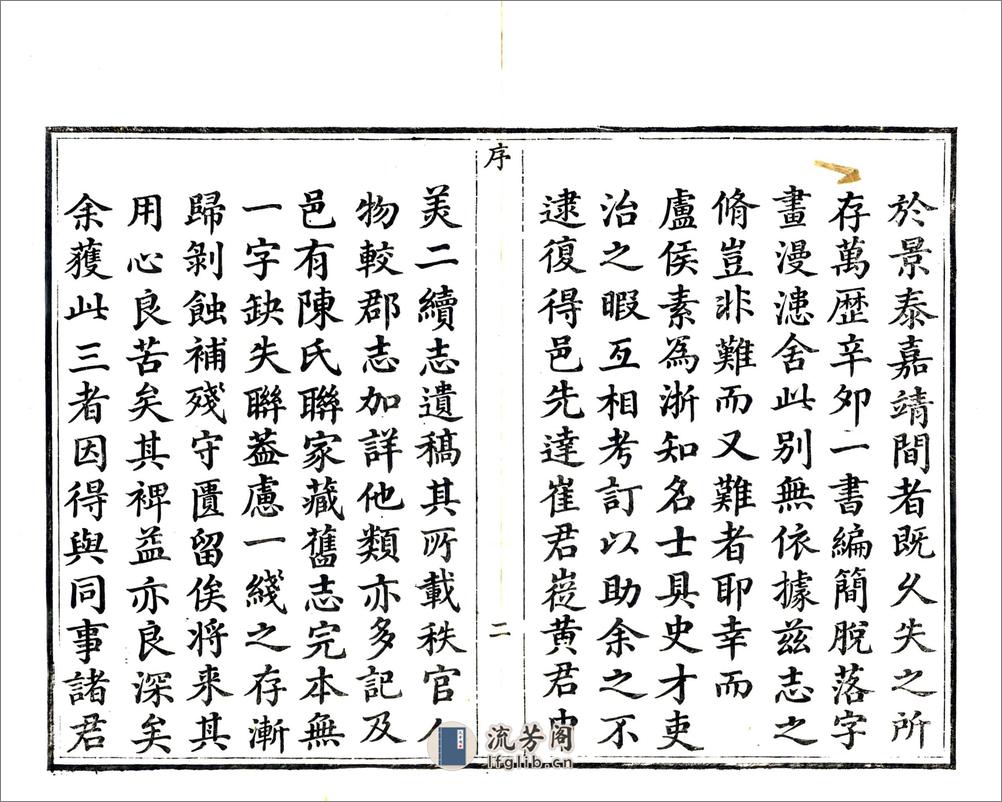 於景泰嘉靖間者既久失之所
存萬歷辛夘一書編簡脫落字
畫漫漶舍此别無依據兹志之
脩豈非難而又難者耶幸而
盧侯素為浙知名士具史才吏
治之暇互相考訂以助余之不
逮復得邑先達崔君嵸黄君中
序
二
美二續志遺稿其所載秩官人
物較郡志加詳他類亦多記及
邑有陳氏聯家藏舊志完本無
一字缺失聯葢慮一綫之存漸
歸剝蝕補殘守匱留俟将来其
用心良苦矣其裨益亦良深矣
余獲此三者因得與同事諸君
流芳阁
lfglib.cn